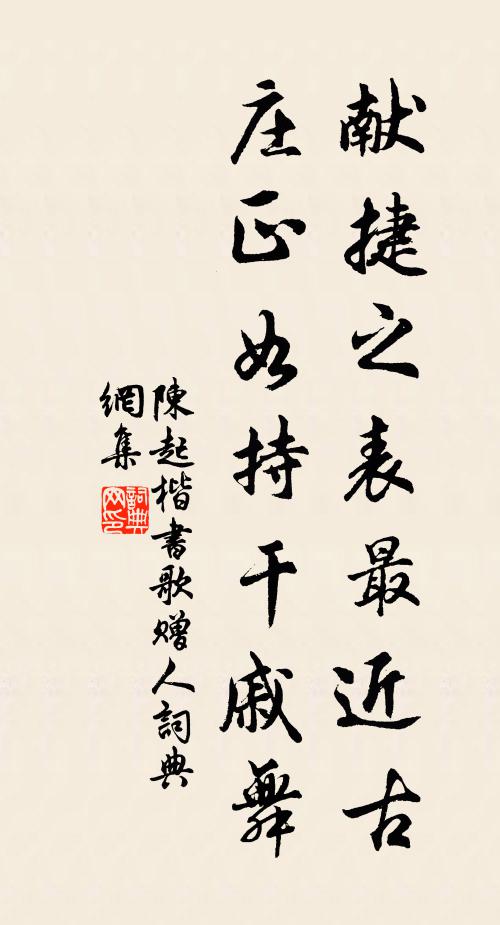 献捷之表最近古
庄正如持干戚舞
陳起楷書歌贈人詞典
網集
詞典
网印